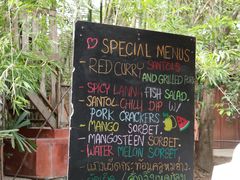 SPECIAL MENUS
- RED CURRY SANTOLS
AND GRILLED PORK
- SPICY LANNA FISH SALAD.
- SANTOL CHILLI DIP W/
PORK CRACKERS
- MANGO SORBET.
- MANGOSTEEN SORBET.
- WATER MELON SORBET.